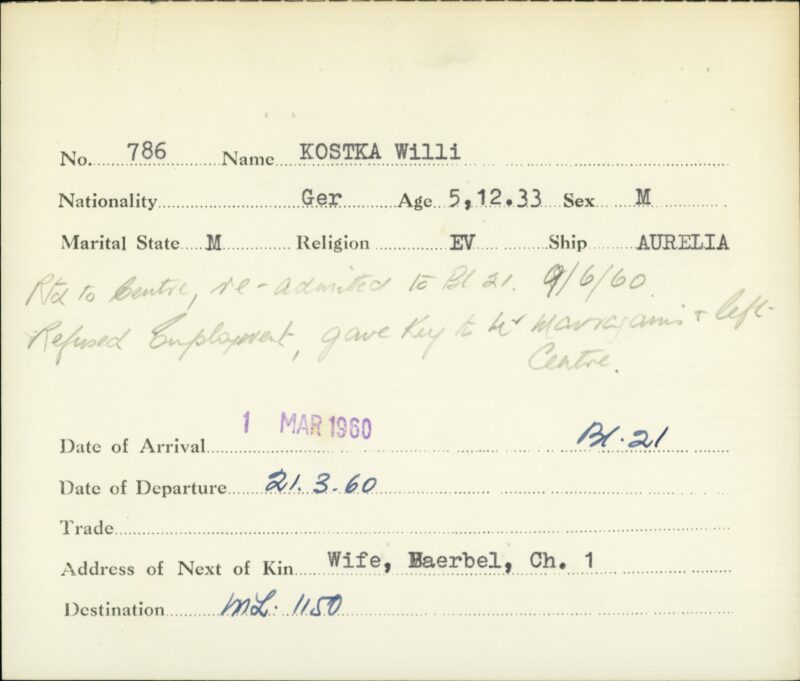 No. 786 Name KOSTKA Willi
Nationality Ger Age 5,12.33 Sex M
Marital State M Religion EV Ship AURELIA
Rtd to Centre, re-admitted to Bl. 21. 9/6/60
Refused Employment, gave Key to Mr & left
Centre.
Date of Arrival 1 MAR 1960 Bl. 21
Date of Departure 21. 3. 60
Trade
Address of Next of Kin Wife, Baerbel, Ch. 1
Destination ML. 1150